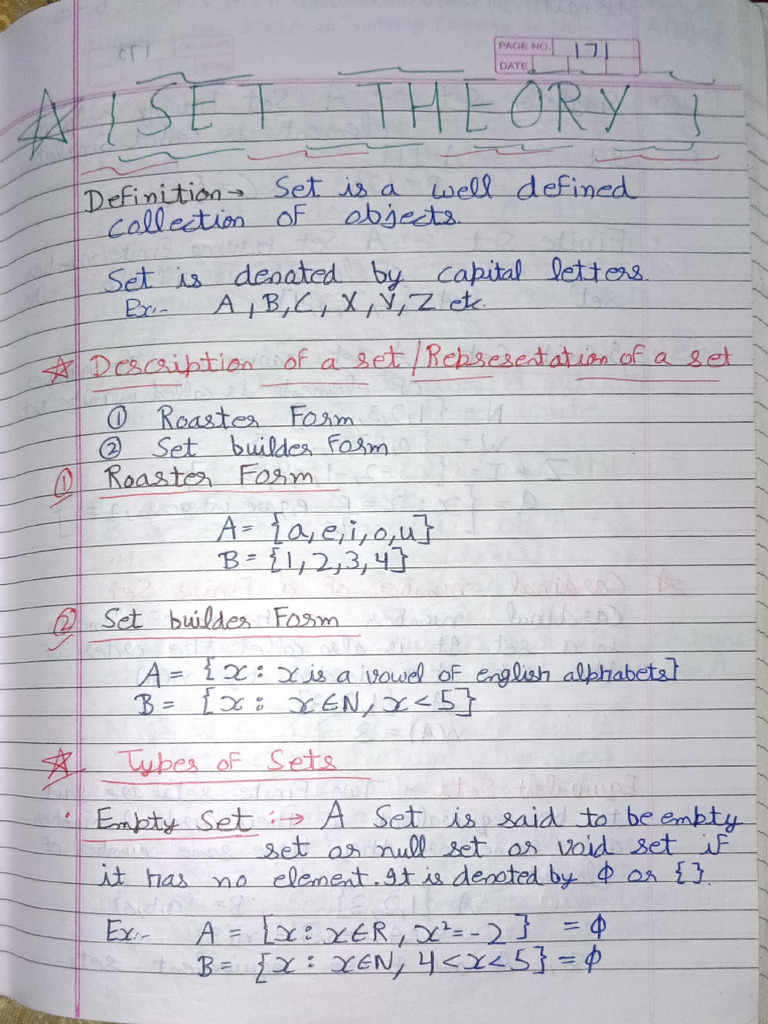 PAGE NO. 171
DATE
{SET THEORY}
Definition→ Set is a well defined
collection of objects.
Set is denoted by capital letters.
Ex:- A, B, C, X, Y, Z etc.
Description of a set / Representation of a set
① Roaster Form
② Set builder Form
① Roaster Form
A = {a, e, i, o, u}
B = {1, 2, 3, 4}
② Set builder Form
A = {x : x is a vowel of english alphabets}
B = {x : x∈N, x<5}
Types of Sets
· Empty Set :→ A Set is said to be empty
set or null set or void set if
it has no element. It is denoted by Φ or {}.
Ex:- A = {x : x∈R, x²=-2} = Φ
B = {x : x∈N, 4<x<5} = Φ